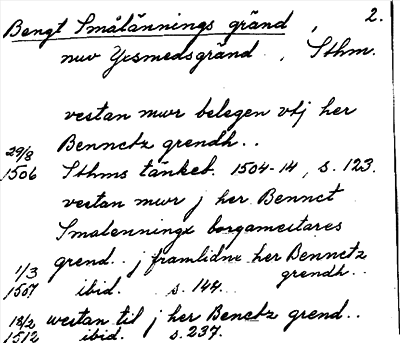 Bengt Smålännings gränd , 2.
nuv Yxsmedsgränd , Sthm.
vestan mwr belegen vtj her
29/8 Bennctz grendh..
1506 Sthms tänkeb. 1504-14, s. 123.
vestan mwr j her Bennct
Smalenningx borgamestares
grend.. j framlidne her Bennctz
1/3 grendh..
1507 ibid. s. 144.
18/2 westan til j her Benctz grend..
1512 ibid. s. 237.